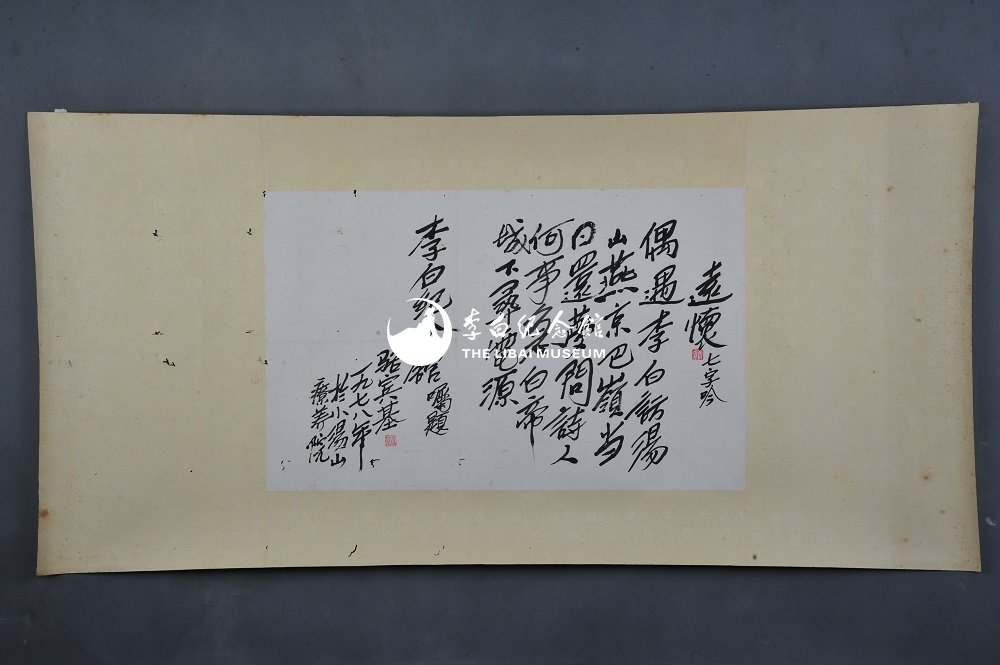 遠懷 七字吟
偶遇李白訪湯
山燕京巴嶺当
日還 借問詩人
何事 白帝
城下尋電源
李白紀念館
嘱題
骆宾基
一九七八年
於小湯山
療养院
李白纪念馆
THE LIBAI MUSEUM